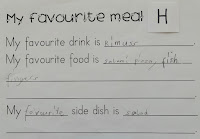 My favourite meal H
My favourite drink is
My favourite food is salami pizza, fish
fingers
My favourite side dish is salad